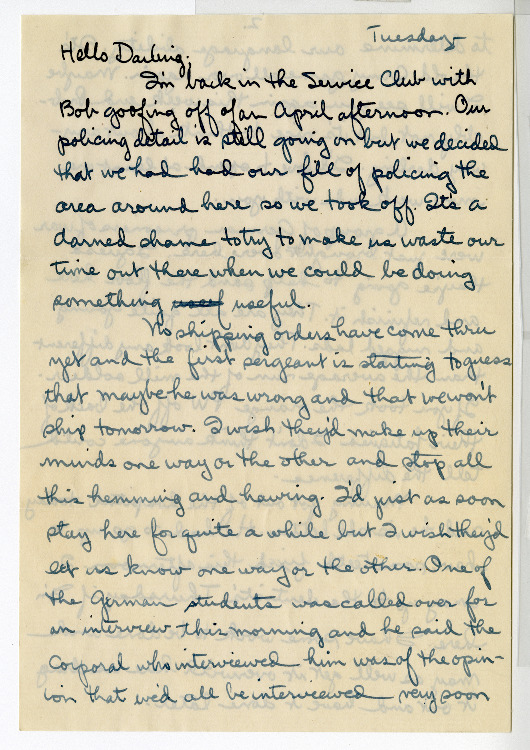 Tuesday
Hello Darling,
I'm back in the Service Club with
Bob goofing off of an April afternoon. Our
policing detail is still going on but we decided
that we had had our fill of policing the
area around here so we took off. It's a
darned shame to try to make us waste our
time out there when we could be doing
something usef useful.
No shipping orders have come thru
yet and the first sergeant is starting to guess
that maybe he was wrong and that we won't
ship tomorrow. I wish they'd make up their
minds one way or the other and stop all
this hemming and hawing. I'd just as soon
stay here for quite a while but I wish they'd
let us know one way or the other. One of
the German students was called over for
an interview this morning and he said the
Corporal who interviewed him was of the opin-
ion that we'd all be interviewed very soon